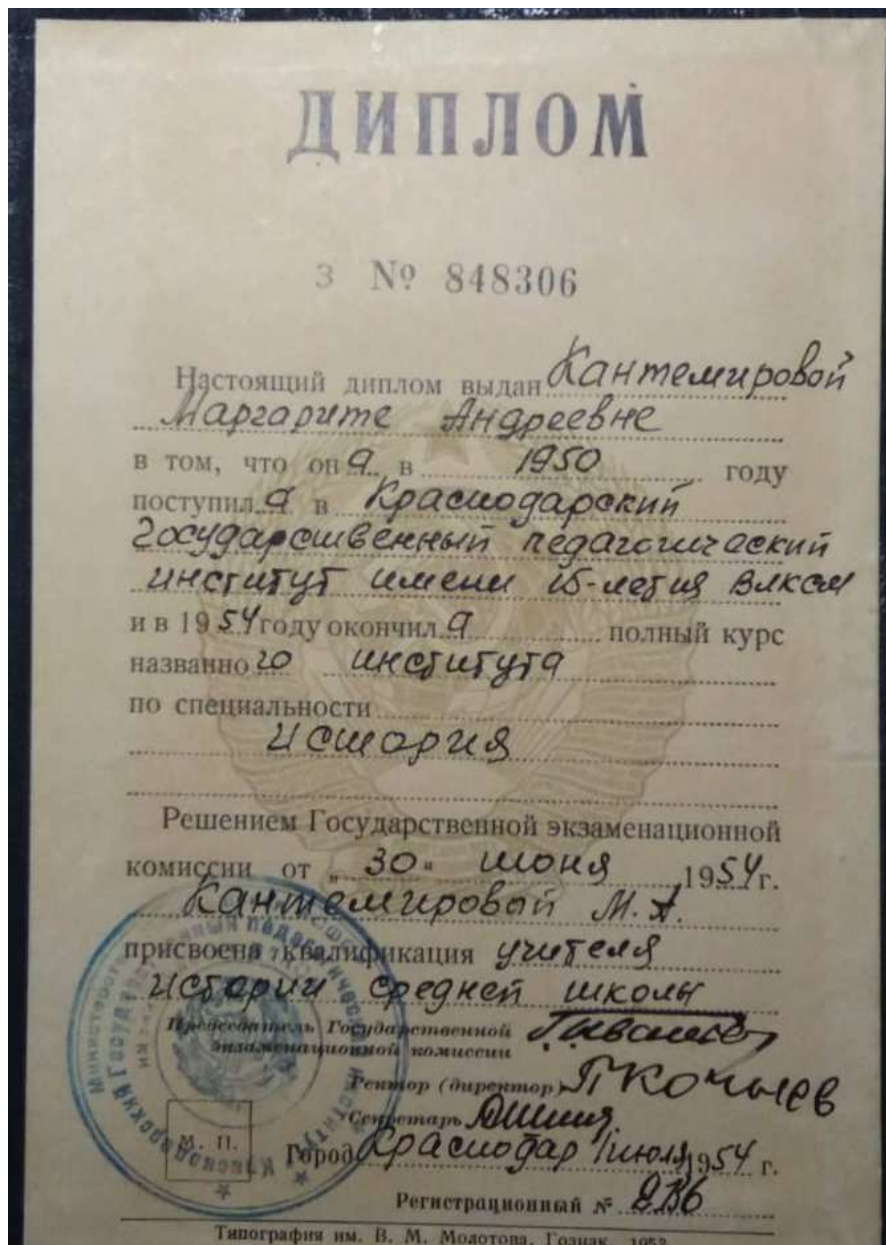 ДИПЛОМ
З № 848306
Настоящий диплом выдан Кантемировой
Маргарите Андреевне
в том, что она в 1950 году
поступила в Краснодарский
государственный педагогический
институт имени 15-летия ВЛКСМ
и в 1954 году окончила полный курс
названного института
по специальности
История
Решением Государственной экзаменационной
комиссии от "30" июня 1954 г.
Кантемировой М. А.
присвоена квалификация учителя
истории средней школы
Председатель Государственной
экзаменационной комиссии
Ректор (директор)
Секретарь
М. П.
Город Краснодар 1 июля 1954 г.
Регистрационный №
Типография им. В. М. Молотова, Гознак, 1953